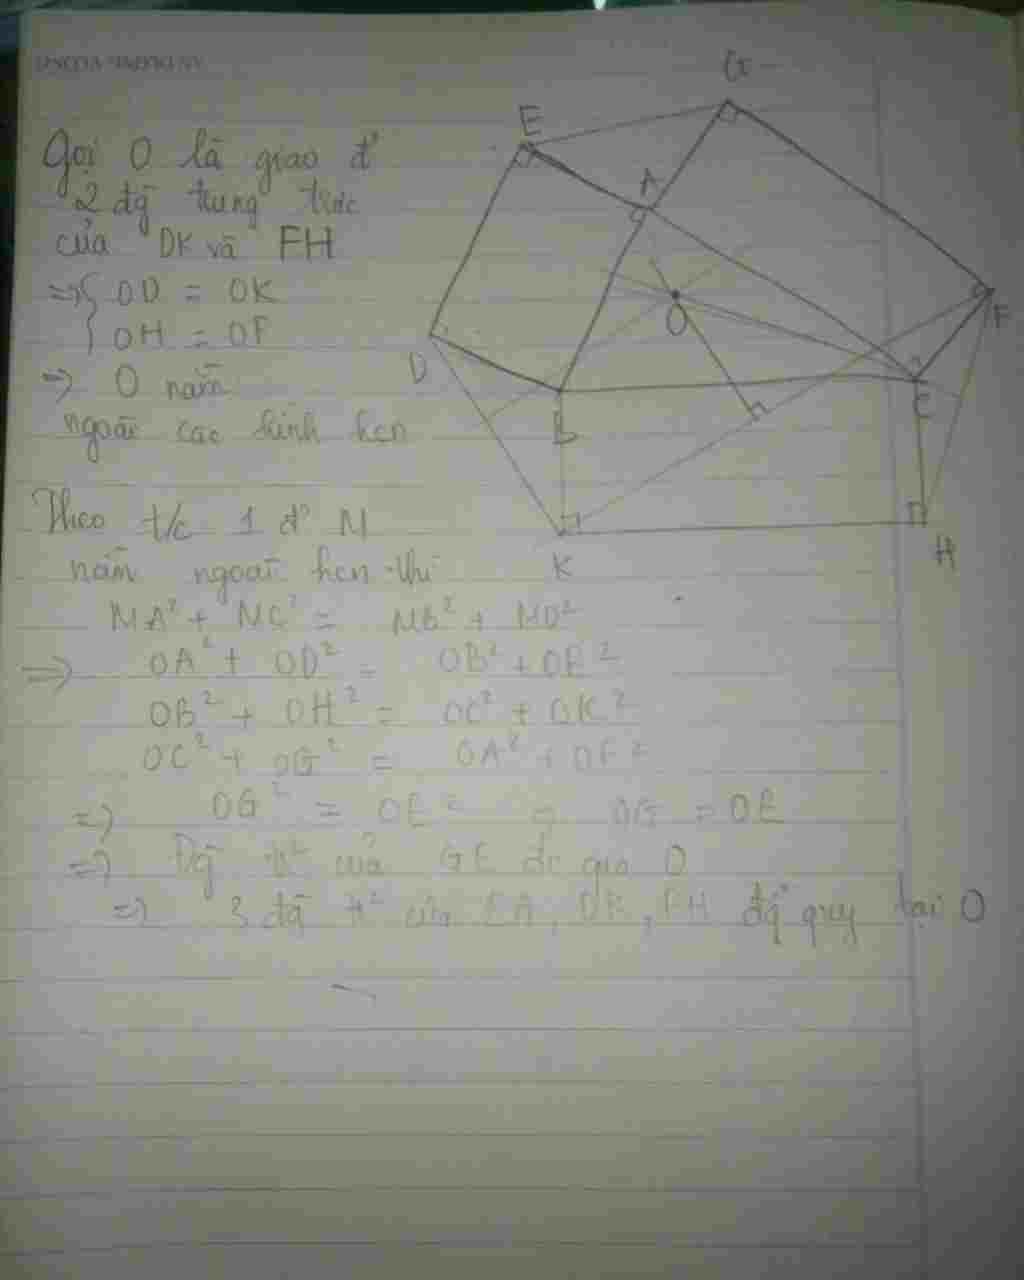 Gọi O là giao đ'
2 đg trung trực
của DK và FH
=> { OD = OK
OH = OF
=> O nằm
ngoài các hình hcn
Theo t/c 1 đ' M
nằm ngoài hcn thì
MA² + MC² = MB² + MD²
=> OA² + OD² = OB² + OE²
OB² + OH² = OC² + OK²
OC² + OG² = OA² + OF²
=> OG² = OE² => OG = OE
=> Đg t² của GE đc qua O
=> 3 đg t² của EA, DK, FH đg quy tại O
G
E
A
O
F
D
B
C
K
H